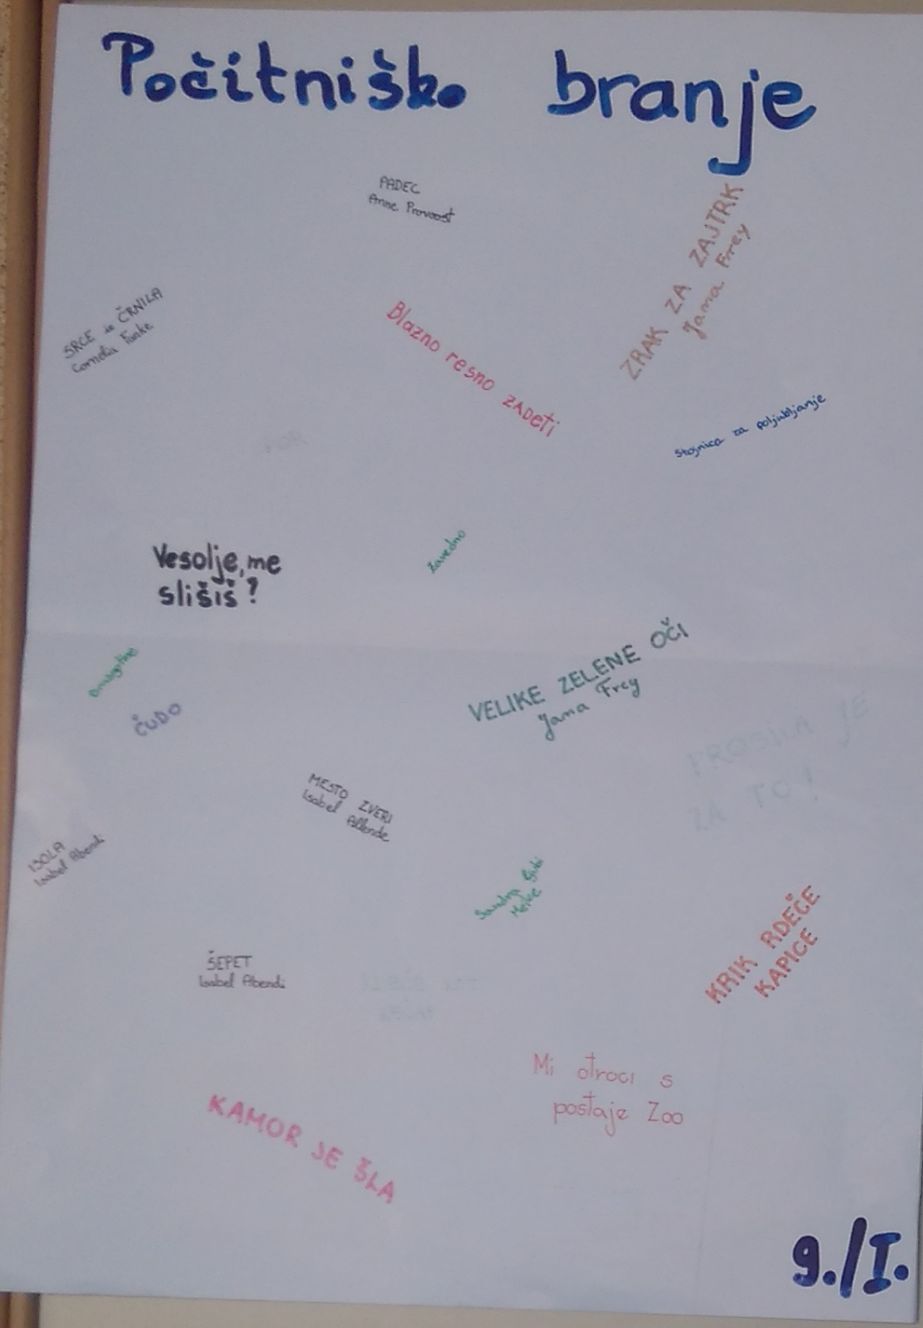 Počitniško branje
PADEC
Anne Provoost
ZRAK ZA ZAJTRK
Jana Frey
SRCE iz ČRNILA
Cornelia Funke
Blazno resno zadeti
Stojnica za poljubljanje
Vesolje, me
slišiš?
Zavedno
VELIKE ZELENE OČI
Jana Frey
ČUDO
PROSILA JE
ZA TO!
MESTO ZVERI
Isabel Allende
ISOLA
Isabel Abendi
Sandra
ŠEPET
Isabel Abendi
KRIK RDEČE
KAPICE
Mi otroci s
postaje Zoo
KAMOR JE ŠLA
9./I.